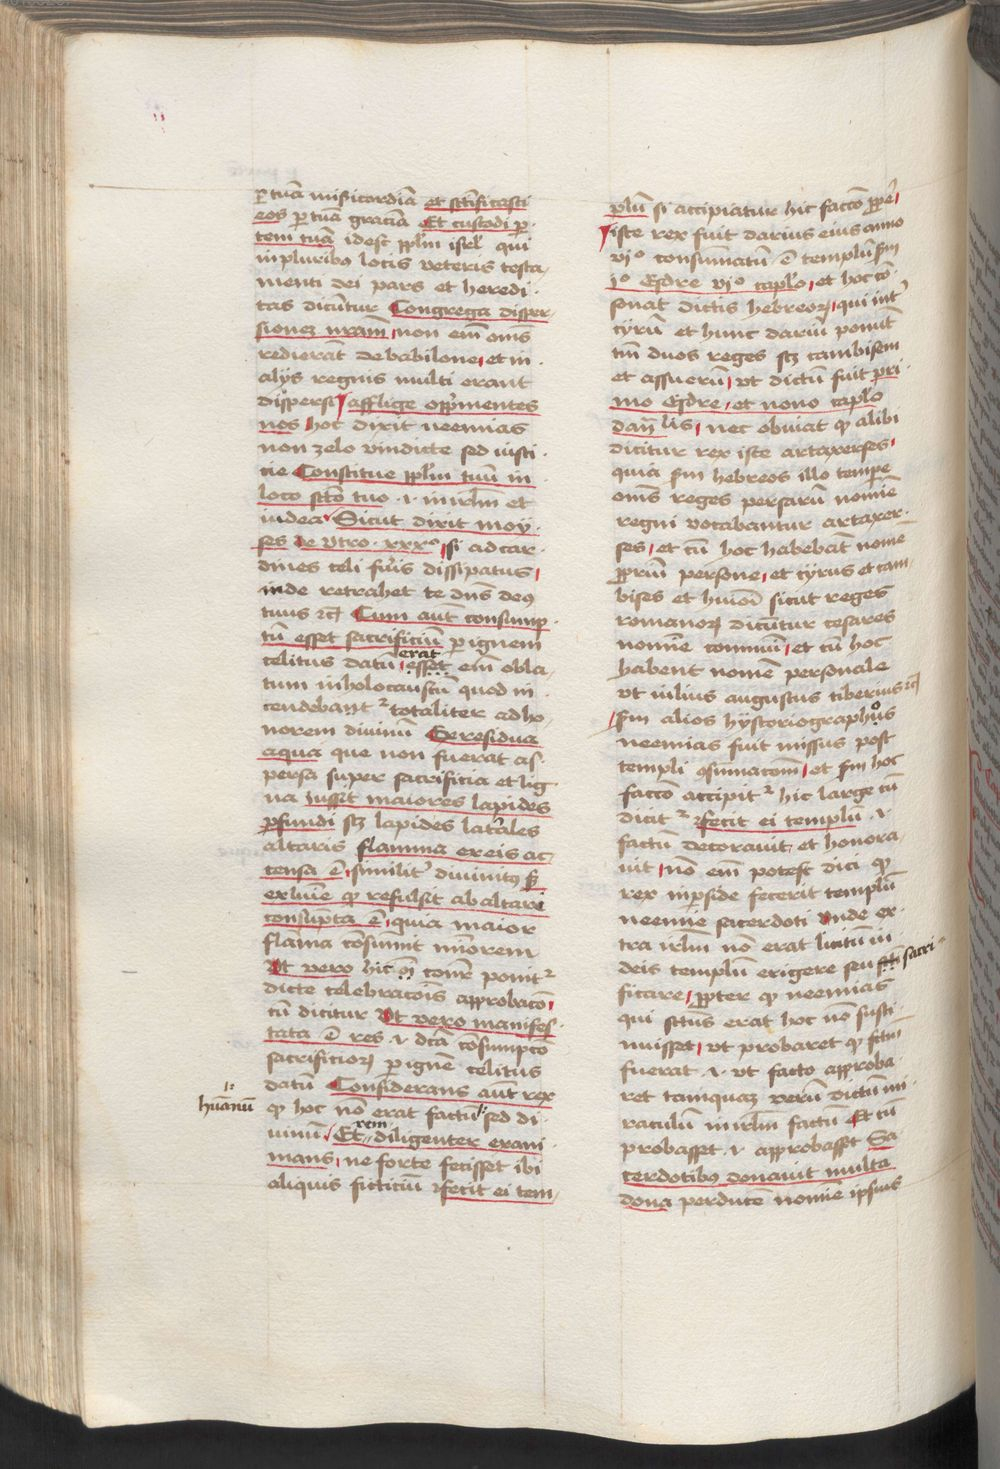 ꝑ tuā misẜicordiā et sctīficasti
eos ꝑ tuā graciā Et custodi ꝑ
tem tuā idest ppl̄m isrl̄ qui
in pluribꝰ locis veteris testa
menti dei pars et heredi
tas dicūtur Congrega disper
sionez nr̄am non em̄ om̄s
redierāt de babilone et in
alijs regnis multi erant
dispersi afflige opp̄mentes
nos hoc dixit neemias
non zelo vindicte sed iusti
cie Constitue ppl̄m tuū in
loco sctō tuo .i. in irlm̄ et
iudea Sicut dixit moy
ses de vtro. xxxo si ad car
dines celi fūis dissipatus
inde retrahet te dn̄s deꝰ
tuus ⁊c̄ Cum aūt consump
tū esset sacrificiū ꝑ ignem
celitus datū erat esset em̄ obla
tum in holocaustū quod in
cendebantr totaliter ad ho
norem diuinū Ex residua
aqua que non fuerat as
persa super sacrificia et lig
na iussit maiores lapides
ꝑfundi scz lapides lat'ales
altaris flamma ex eis ac
censa ē similit' diuinitꝰ s
ex luīe ꝙ refulsit ab altari
consūpta ē quia maior
flāma cōsumit mīorem
Ut vero hic oī com̄r ponitr
dicte celebracōis approbacō
cū dicitur Ut vero manifes
tata ē res .i. dc̄a cōsumpcō
sacrificioꝝ ꝑ ignē celitus
datū Considerans aūt rex
humānū
ꝙ hoc nō erat factū sed di
uinū Et rem diligenter exami
mans ne forte fecisset ibi
aliquis ficticiū ⁊fecit ei tem
plū si accipiatur hic faccō ꝓpe
iste rex fuit darius eius anno
vjo consummatū ē templū scdm
jo Esdre vjo caplo et hoc cō
sonat dictis hebreoꝝ qui int'
cyrū et hunc dariū ponūt
tm̄ duos reges scz cambisem
et assuerū vt dictū fuit pri
mo Esdre et nono caplo
dan̄lis nec obuiat ꝙ alibi
dicitur rex iste artaxerses
quia scdm hebreos illo tempe
om̄s reges persarū nomīe
regni vocabantur artaxer
ses et cū hoc habebāt nomē
ꝓpriū persone et cyrus et cam
bises et huiōi sicut reges
romanoꝝ dicūtur cesares
nomīe commui et cū hoc
habent nomē personale
vt iulius augustus tiberius ⁊c̄
scdm alios hystoriographos
neemias fuit missus post
templi ꝯsumacōm et scdm hoc
faccō accipitr hic large cū
dicitr ⁊fecit ei templū .i.
factū decorauit et honora
uit nō em̄ potest dici ꝙ
rex in perside fecerit templū
neemie sacerdoti vnde ex
tra irlm̄ nō erat licitū iu
deis templū erigere seu sacri
ficare ꝓpter ꝙ neemias
qui sctūs erat hoc nō susti
nuisset vt probaret ꝙ sctū
fuerat .i. vt facto approba
ret tamquaz verū dictū mi
raculū in irlm̄ factū Et cū
probasset .i. approbasset Sa
cerdotibꝰ donauit multa
dona perducē nomīe ipsius